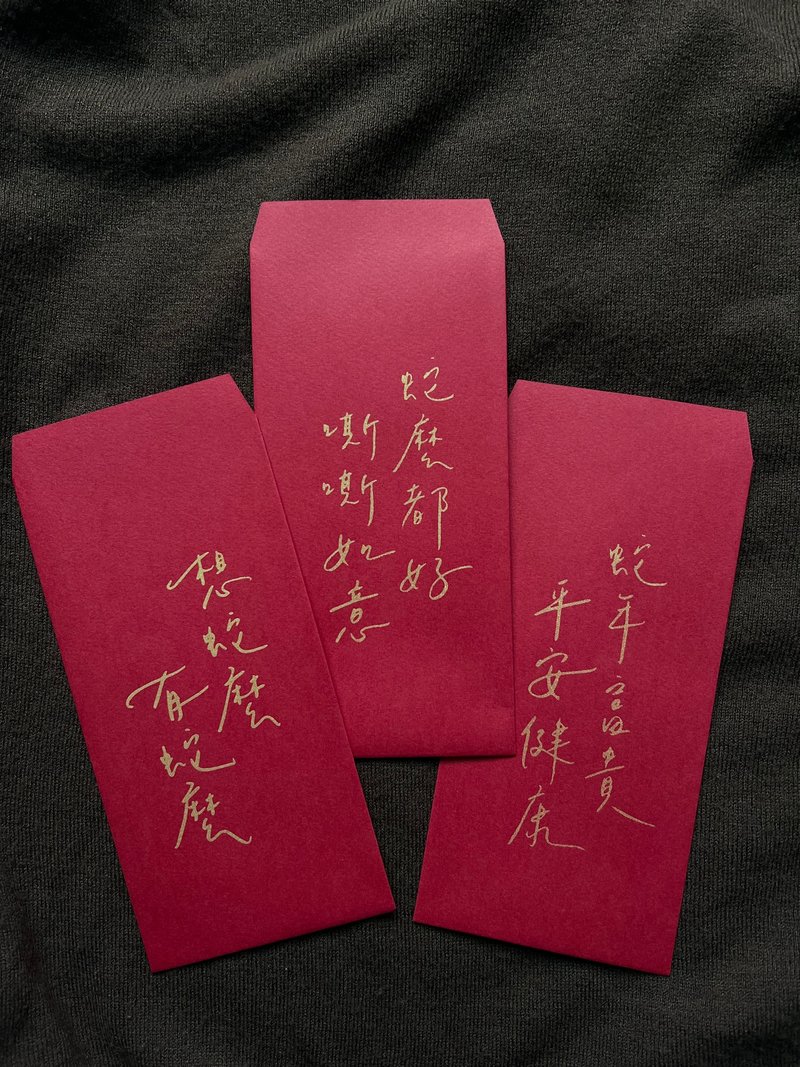 想蛇麼
有蛇麼
蛇麼都好
嘶嘶如意
蛇年富貴
平安健康